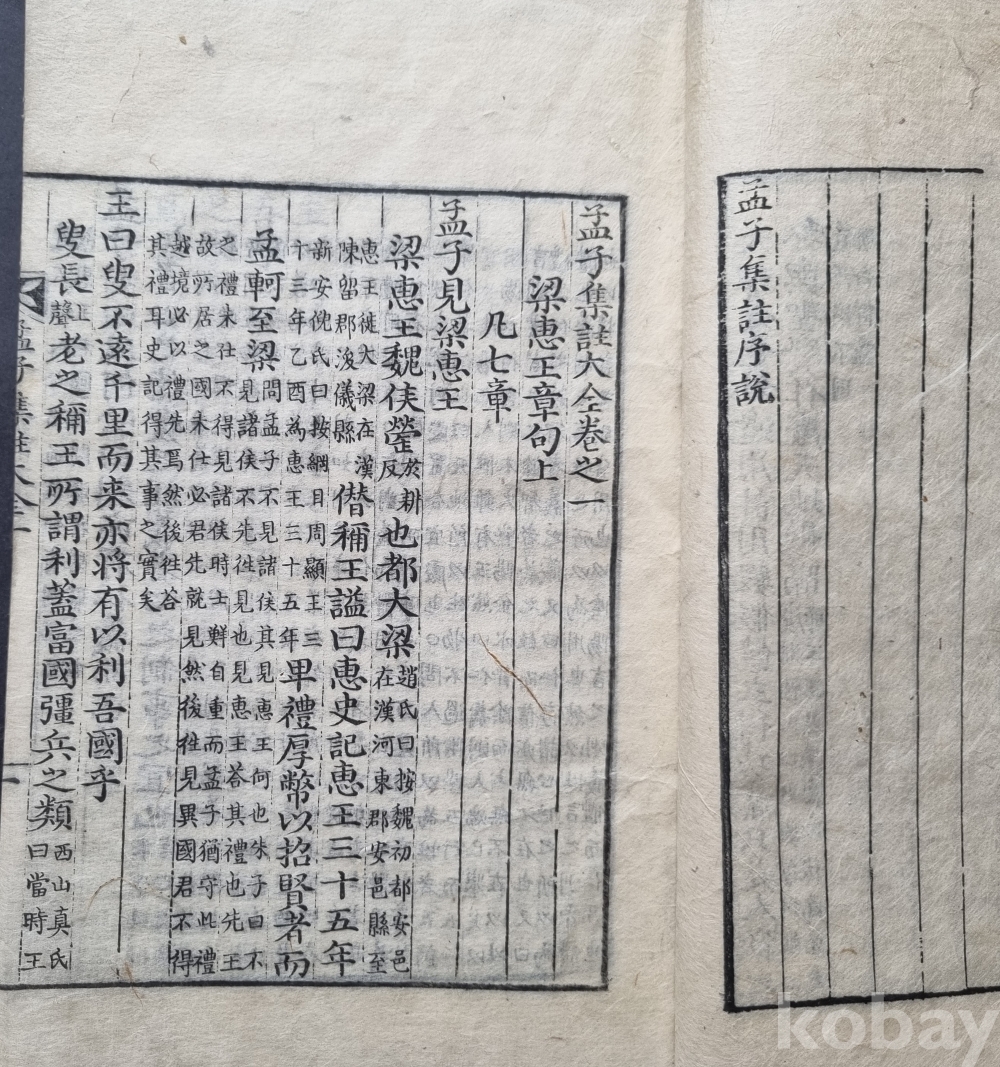 孟子集註序說
孟子集註大全卷之一
梁惠王章句上
凡七章
孟子見梁惠王
梁惠王魏侯罃於耕反也都大梁趙氏曰按魏初都安邑在漢河東郡安邑縣至
惠王徙大梁在漢陳留郡浚儀縣僭稱王謚曰惠史記惠王三十五年
新安倪氏曰按綱目周顯王三十三年乙酉為惠王三十五年卑禮厚幣以招賢者而
孟軻至梁問孟子不見諸侯其見惠王何也朱子曰不見諸侯不先徃見也見惠王荅其禮也先王
之禮未仕不得見諸侯時士鮮自重而孟子猶守此禮
故所居之國未仕必君先就見然後徃見異國君不得
越境必以禮先焉然後徃荅
其禮耳史記得其事之實矣
王曰叟不遠千里而来亦將有以利吾國乎
叟長上聲老之稱王所謂利蓋富國彊兵之類西山真氏曰當時王
孟子集註大全一
一
kobay